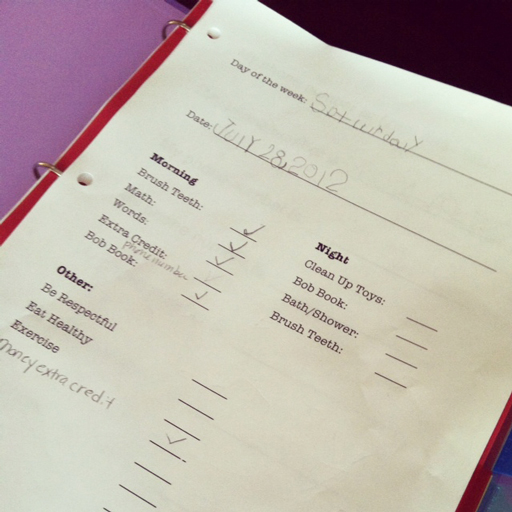 Day of the week: Saturday
Date: JUlY 28, 2012
Morning
Brush Teeth:
Math:
Words:
Extra Credit:
phone number
Bob Book:
Night
Clean Up Toys:
Bob Book:
Bath/Shower:
Brush Teeth:
Other:
Be Respectful
Eat Healthy
Exercise
money extra credit